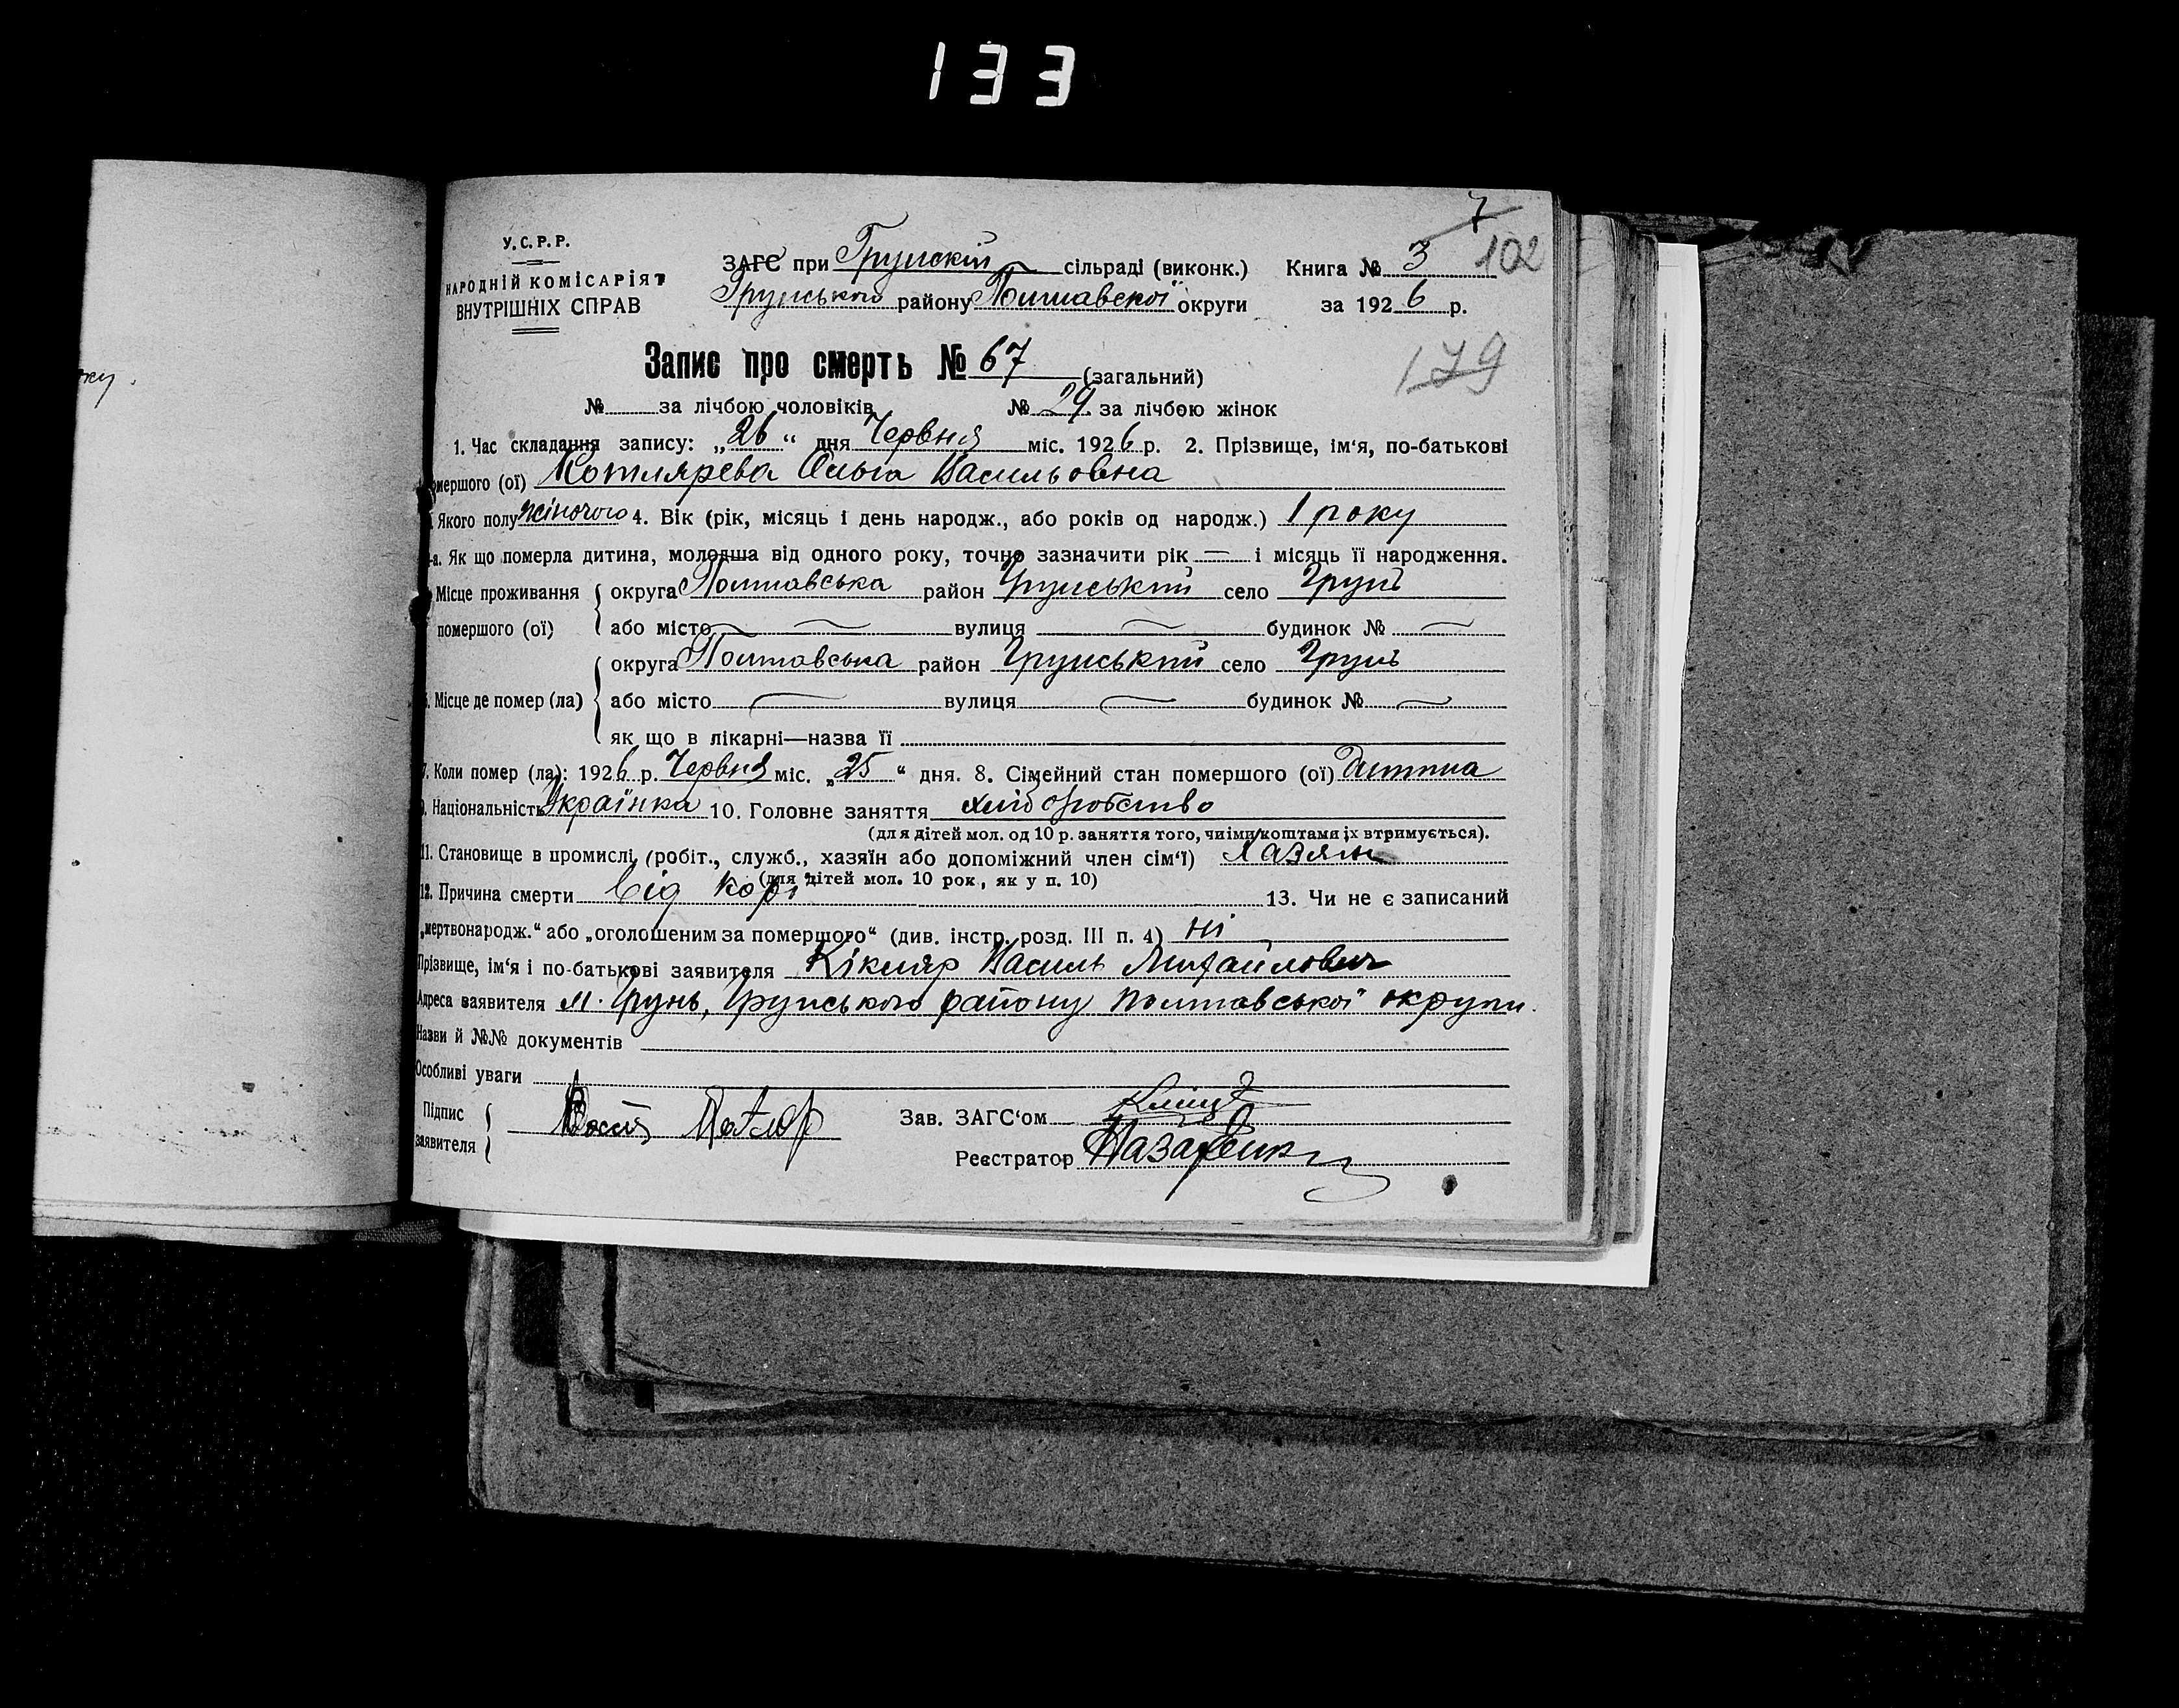 133
ку.
7
У.С.Р.Р.
НАРОДНІЙ КОМІСАРІЯТ
ВНУТРІШНІХ СПРАВ
ЗАГС при Грунскій сільраді (виконк.) Книга № 3 102
Грунського району Полтавскої округи за 1926 р.
179
Запис про смерть № 67 (загальний)
№ за лічбою чоловіків № 29 за лічбою жінок
1. Час складання запису: „26“ дня Червня міс. 1926 р. 2. Прізвище, ім‘я, по-батькові
помершого (ої) Котлярева Ольга Васильовна
Якого полу жіночого 4. Вік (рік, місяць і день народж., або років од народж.) 1 року
а. Як що померла дитина, молодша від одного року, точно зазначити рік — і місяць її народження.
Місце проживання помершого (ої) округа Полтавська район Грунський село Грунь
або місто — вулиця — будинок № —
6. Місце де помер (ла) округа Полтавська район Грунський село Грунь
або місто — вулиця — будинок № —
як що в лікарні—назва її
7. Коли помер (ла): 1926 р. Червня міс. „25“ дня. 8. Сімейний стан помершого (ої) Дитина
9. Національність Українка 10. Головне заняття хліборобство
(для дітей мол. од 10 р. заняття того, чиїми коштами їх втримується).
11. Становище в промислі (робіт., служб., хазяїн або допоміжний член сім‘ї) Хазяін
(для дітей мол. 10 рок, як у п. 10)
12. Причина смерти Від корі 13. Чи не є записаний
„мертвонародж.“ або „оголошеним за помершого“ (див. інстр. розд. III п. 4) ні
Прізвище, ім‘я і по-батькові заявителя Василь Михайлович
Адреса заявителя м. Грунь, Грунського району Полтавської округи.
Назви й №№ документів
Особливі уваги
Підпис заявителя Котляр
Зав. ЗАГС‘ом
Реєстратор Назаренко